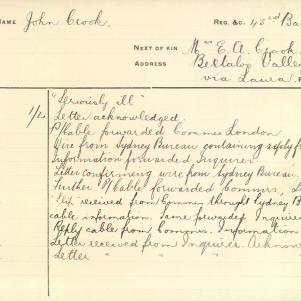 NAME John Crook. REG. &c. 43rd Ba
NEXT OF KIN Mrs E. A. Crook
ADDRESS Beltaloo Valley
via Laura
"Seriously ill"
Letter acknowledged.
P/Cable forwarded Commrs London.
Wire from Sydney Bureau containing
Information forwarded Inquirer
Letter confirming wire from Sydney Bureau.
Further P/Cable forwarded Commrs,
received from Commrs through Sydney B
cable information. Same forwarded Inquire
Reply cable from Commrs. Information
Letter received from Inquirer. Acknow
Letter " "